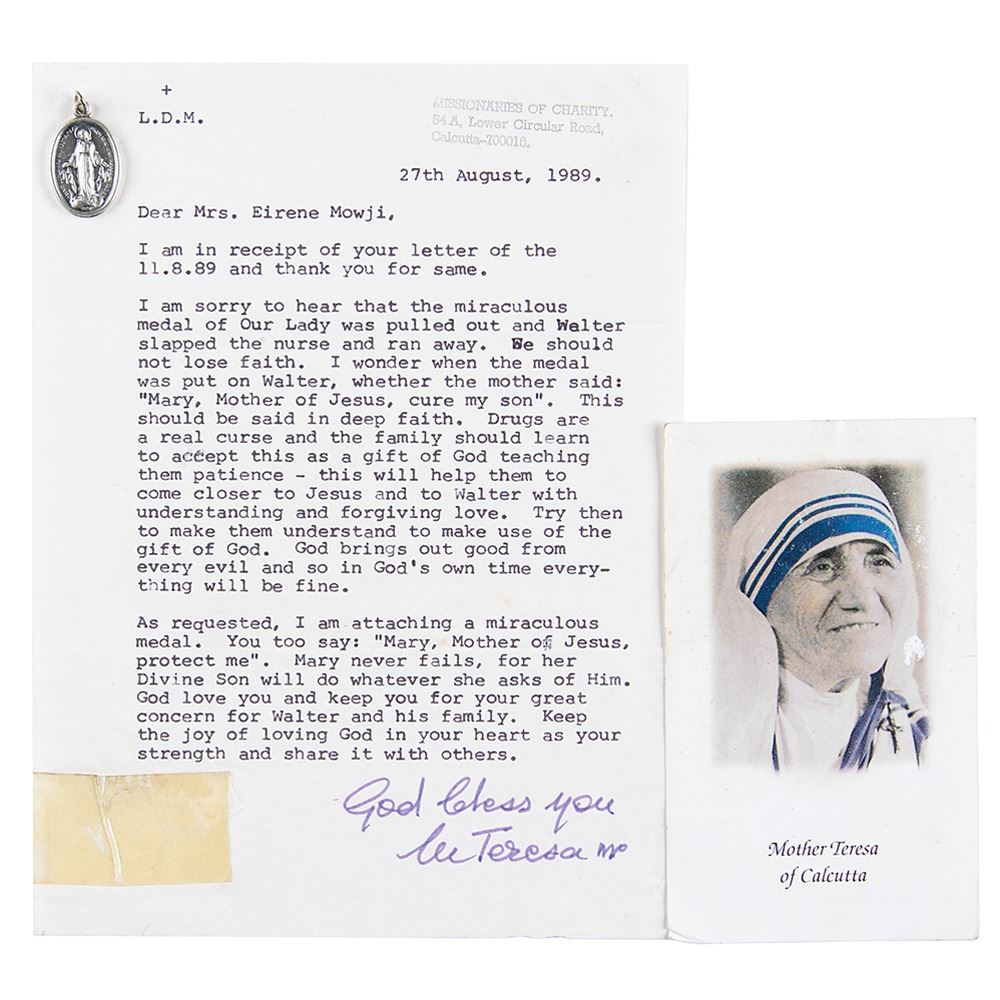 +
L.D.M.
MISSIONARIES OF CHARITY.
54A, Lower Circular Road,
Calcutta-700016.
27th August, 1989.
Dear Mrs. Eirene Mowji,
I am in receipt of your letter of the
11.8.89 and thank you for same.
I am sorry to hear that the miraculous
medal of Our Lady was pulled out and Walter
slapped the nurse and ran away.  We should
not lose faith.  I wonder when the medal
was put on Walter, whether the mother said:
"Mary, Mother of Jesus, cure my son".  This
should be said in deep faith.  Drugs are
a real curse and the family should learn
to accept this as a gift of God teaching
them patience - this will help them to
come closer to Jesus and to Walter with
understanding and forgiving love.  Try then
to make them understand to make use of the
gift of God.  God brings out good from
every evil and so in God's own time every-
thing will be fine.
As requested, I am attaching a miraculous
medal.  You too say: "Mary, Mother of Jesus,
protect me".  Mary never fails, for her
Divine Son will do whatever she asks of Him.
God love you and keep you for your great
concern for Walter and his family.  Keep
the joy of loving God in your heart as your
strength and share it with others.
God bless you
M Teresa mc
Mother Teresa
of Calcutta